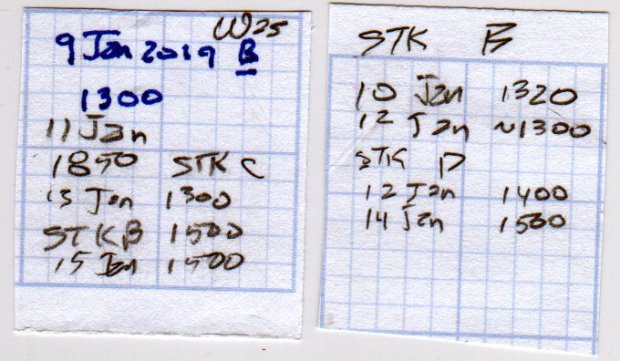 W25
9 Jan 2019 B
1300
11 Jan
1850 STK C
13 Jan 1300
STK B 1500
15 Jan 1500
STK B
10 Jan 1320
12 Jan ~1300
STK D
12 Jan 1400
14 Jan 1500